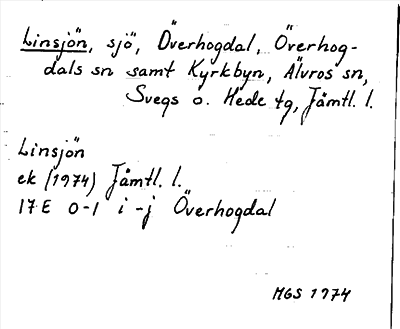 Linsjön, sjö, Överhogdal, Överhog-
dals sn samt Kyrkbyn, Älvros sn,
Svegs o. Hede tg, Jämtl. l.
Linsjön
ek (1974) Jämtl. l.
17E 0-1 i-j Överhogdal
MGS 1974